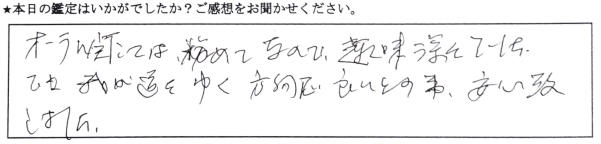 ★本日の鑑定はいかがでしたか？ご感想をお聞かせください。
オーラ鑑定では、初めてなので、興味深々でした。
でも我が道をゆく方向感、良いとの事、安心致
しました。